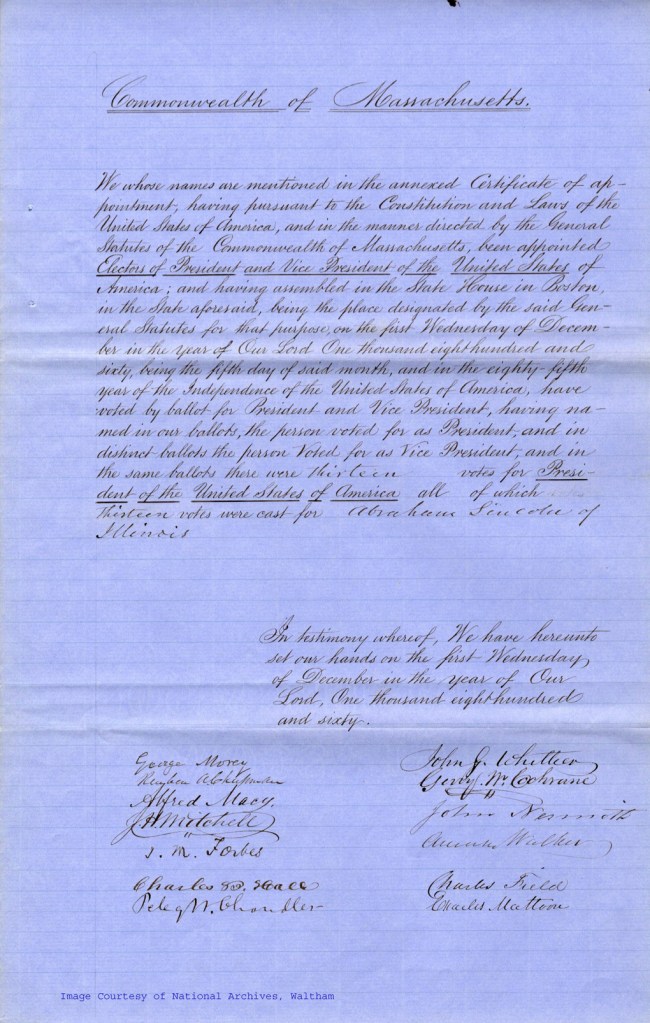 Commonwealth of Massachusetts.
We whose names are mentioned in the annexed Certificate of ap-
pointment, having pursuant to the Constitution and Laws of the
United States of America, and in the manner directed by the General
Statutes of the Commonwealth of Massachusetts, been appointed
Electors of President and Vice President of the United States of
America; and having assembled in the State House in Boston,
in the State aforesaid, being the place designated by the said Gen-
eral Statutes for that purpose, on the first Wednesday of Decem-
ber in the year of Our Lord One thousand eight hundred and
sixty, being the fifth day of said month, and in the eighty-fifth
year of the Independence of the United States of America, have
voted by ballot for President and Vice President, having na-
med in our ballots, the person voted for as President, and in
distinct ballots the person Voted for as Vice President, and in
the same ballots there were thirteen votes for Presi-
dent of the United States of America all of which
thirteen votes were cast for Abraham Lincoln of
Illinois
In testimony whereof, We have hereunto
set our hands on the first Wednesday
of December in the year of Our
Lord, One thousand eight hundred
and sixty.
George Morey
Reuben A. Chapman
Alfred Macy.
J H Mitchell
J. M. Forbes
Charles B. Hall
Peleg W. Chandler
John G. Whittier
Gerry W. Cochrane
John Nesmith
Amasa Walker
Charles Field
Charles Mattoon
Image Courtesy of National Archives, Waltham